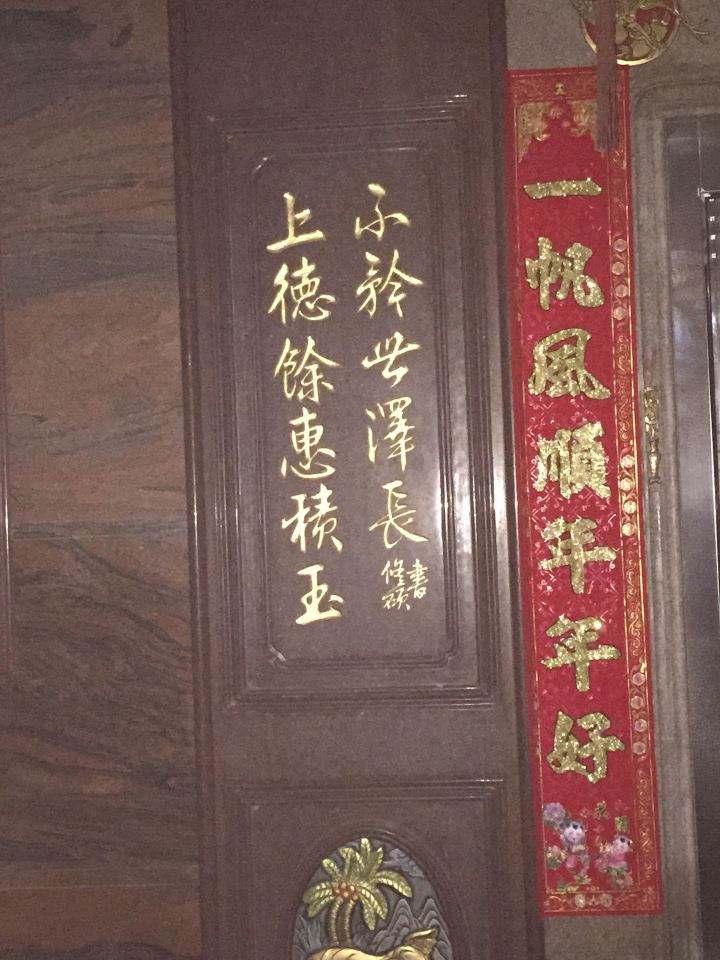 上德餘惠積玉
不矜世澤長
修碩
書
一帆風順年年好